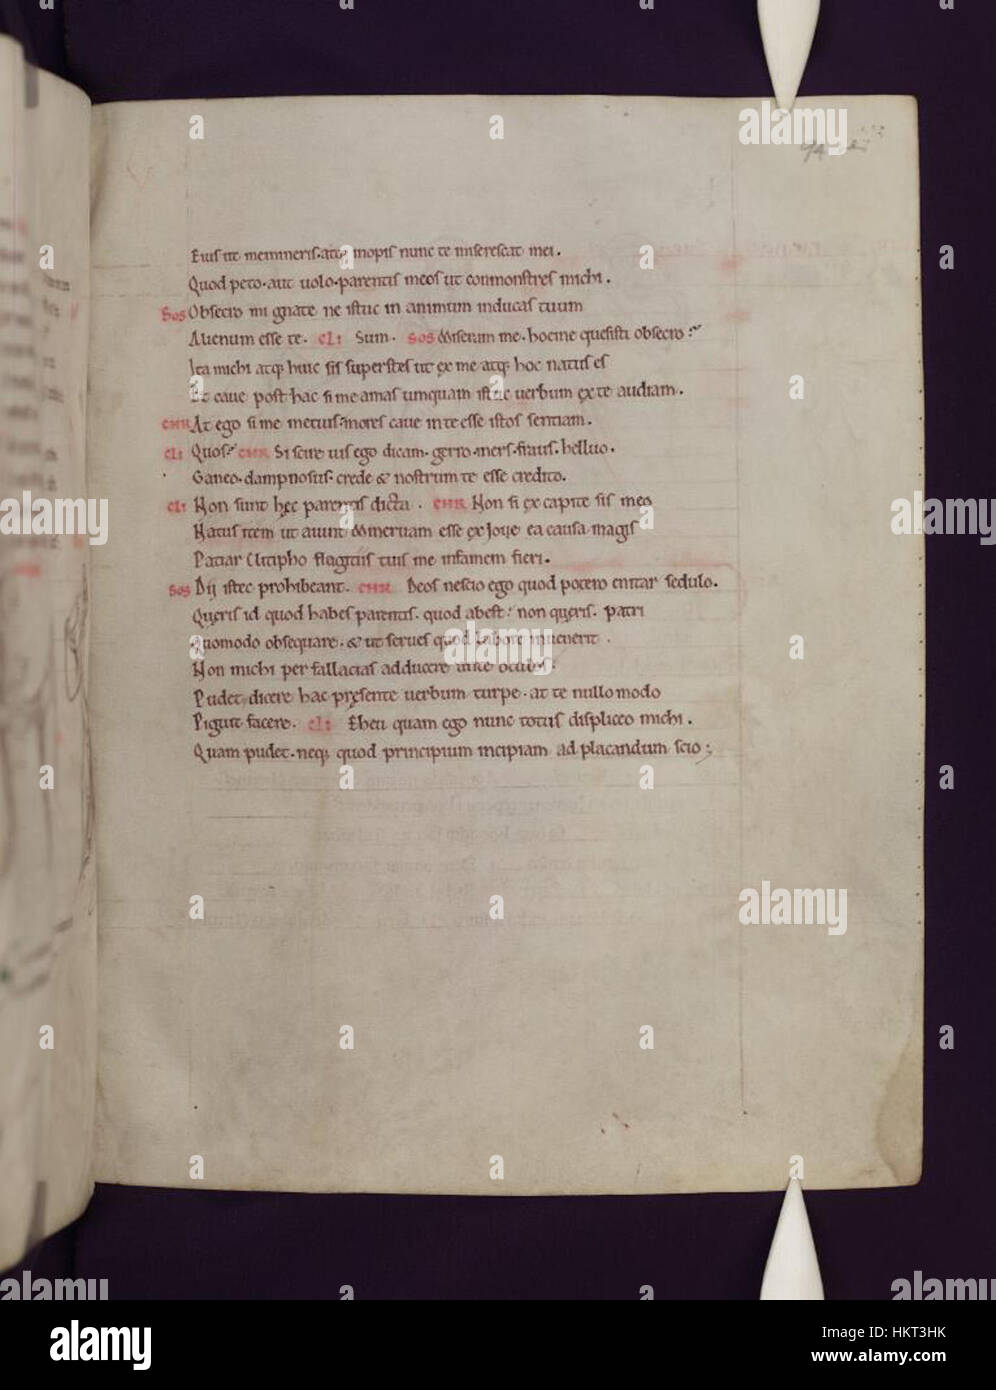 94
Eius ut memineris. atq; inopis nunc te miserescat mei.
Quod peto. aut uolo. parentis meos ut conmonstres michi.
SOS Obsecro mi gnate ne istuc in animum inducas tuum
Alienum esse te. CLI Sum. SOS Miserum me. hocine quesisti obsecro?
Ita michi atq; huic sis superstes ut ex me atq; hoc natus es
Et caue post hac si me amas umquam istuc uerbum ex te audiam.
CHR At ego si me metuis. mores caue in te esse istos sentiam.
CLI Quos? CHR Si scire uis ego dicam. gerro. iners. fraus. helluo.
Ganeo. dampnosus. crede & nostrum te esse credito.
CLI Non sunt hęc parentis dicta. CHR Non si ex capite sis meo
Natus item ut aiunt Mineruam esse ex Ioue ea causa magis
Patiar Clitipho flagitiis tuis me infamem fieri.
SOS Dii istec prohibeant. CHR Deos nescio ego quod potero enitar sedulo.
Quęris id quod habes parentis. quod abest non quęris. patri
Quomodo obsequare. & ut serues quod labore inuenerit.
Non michi per fallacias adducere ante oculos.
Pudet dicere hac pręsente uerbum turpe. at te nullo modo
Piguit facere. CLI Eheu quam ego nunc totus displiceo michi.
Quam pudet. neq; quod principium incipiam ad placandum scio;
alamy
Image ID: HKT3HK
www.alamy.com